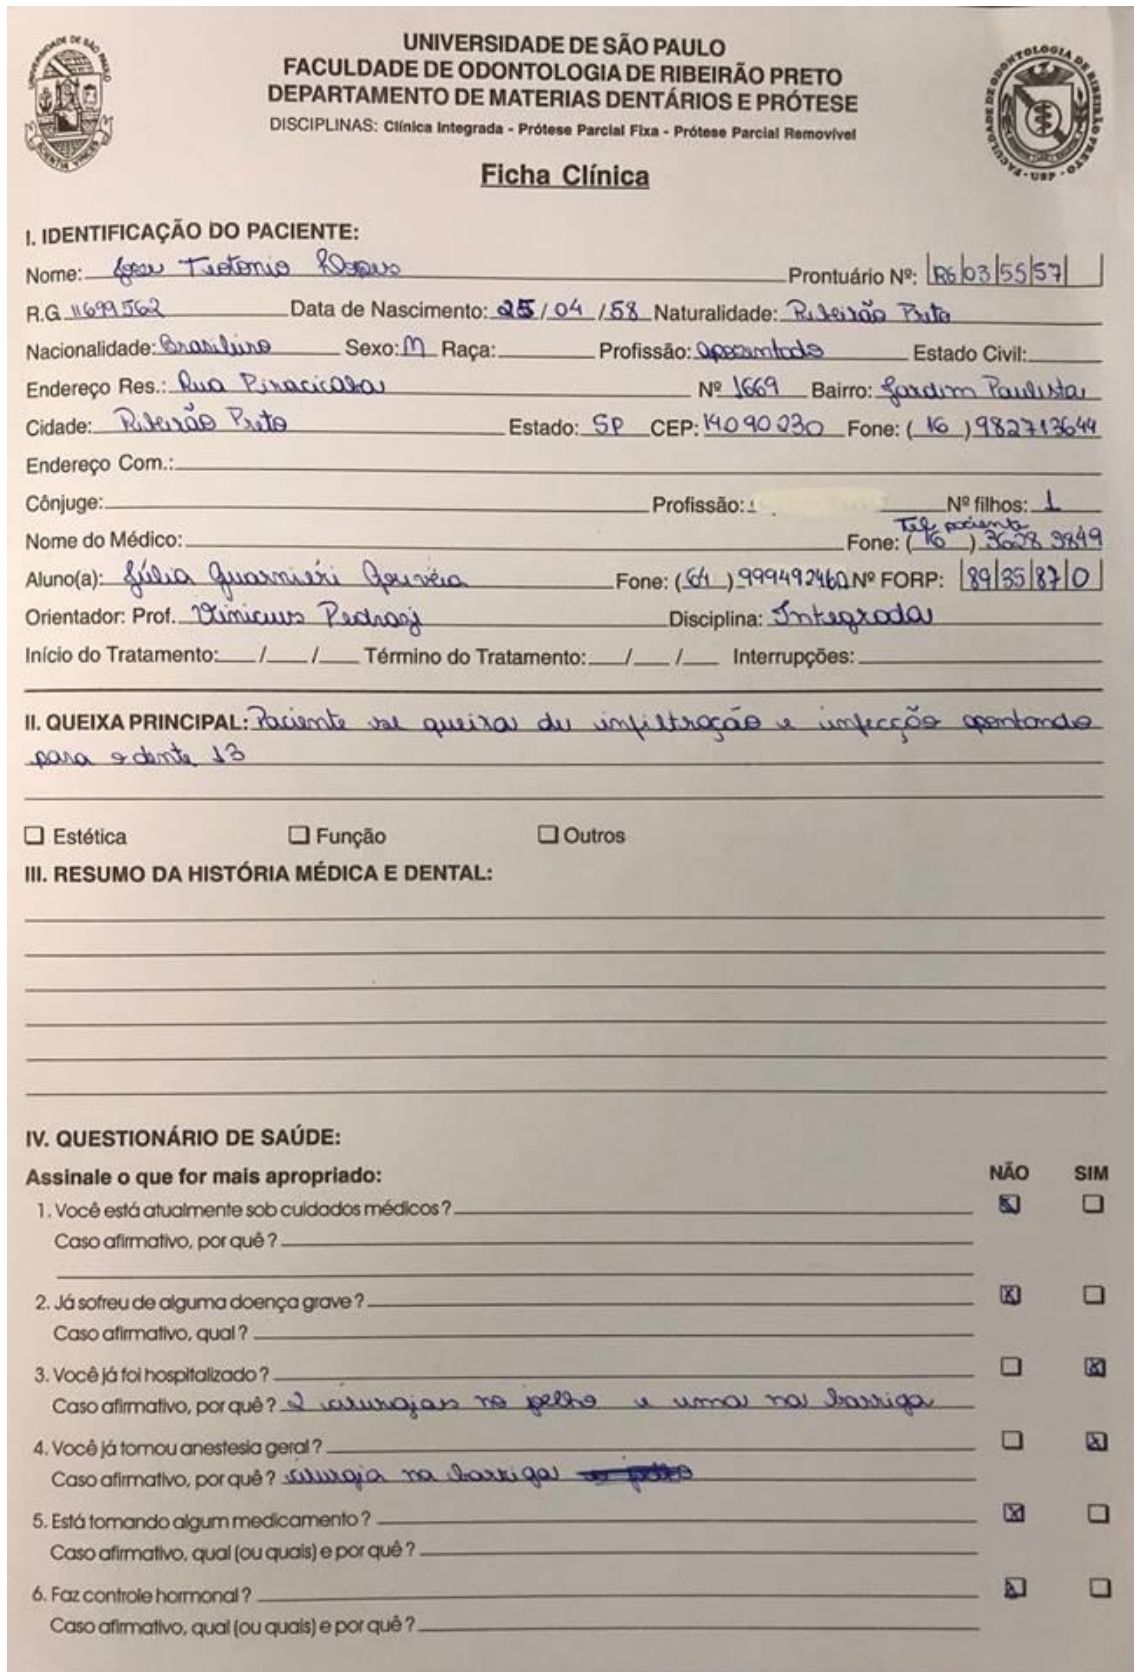 UNIVERSIDADE DE SÃO PAULO
FACULDADE DE ODONTOLOGIA DE RIBEIRÃO PRETO
DEPARTAMENTO DE MATERIAS DENTÁRIOS E PRÓTESE
DISCIPLINAS: Clínica Integrada - Prótese Parcial Fixa - Prótese Parcial Removível
UNIVERSIDADE DE SÃO PAULO
SCIENTIA VINCES
FACULDADE DE ODONTOLOGIA DE RIBEIRÃO PRETO - USP
Ficha Clínica
I. IDENTIFICAÇÃO DO PACIENTE:
Nome: Prontuário Nº: R6 03 55 57
R.G. 11699562 Data de Nascimento: 25/04/58 Naturalidade: Ribeirão Preto
Nacionalidade: Brasileiro Sexo: M Raça: Profissão: aposentado Estado Civil:
Endereço Res.: Rua Piracicaba Nº 1669 Bairro: Jardim Paulista
Cidade: Ribeirão Preto Estado: SP CEP: 14090230 Fone: (16) 982713644
Endereço Com.:
Cônjuge: Profissão: Nº filhos: 1
Tel paciente
Nome do Médico: Fone: (16) 3628 9849
Aluno(a): Júlia Guarnieri Gouvêia Fone: (64) 999492460 Nº FORP: 89 35 87 0
Orientador: Prof. Vinicius Pedrazi Disciplina: Integrada
Início do Tratamento: / / Término do Tratamento: / / Interrupções:
II. QUEIXA PRINCIPAL: Paciente se queixa de infiltração e infecção apontando
para o dente 13
Estética Função Outros
III. RESUMO DA HISTÓRIA MÉDICA E DENTAL:
IV. QUESTIONÁRIO DE SAÚDE:
Assinale o que for mais apropriado: NÃO SIM
1. Você está atualmente sob cuidados médicos?
Caso afirmativo, por quê?
2. Já sofreu de alguma doença grave?
Caso afirmativo, qual?
3. Você já foi hospitalizado?
Caso afirmativo, por quê? 2 cirurgias no joelho e uma na barriga
4. Você já tomou anestesia geral?
Caso afirmativo, por quê? cirurgia na barriga
5. Está tomando algum medicamento?
Caso afirmativo, qual (ou quais) e por quê?
6. Faz controle hormonal?
Caso afirmativo, qual (ou quais) e por quê?